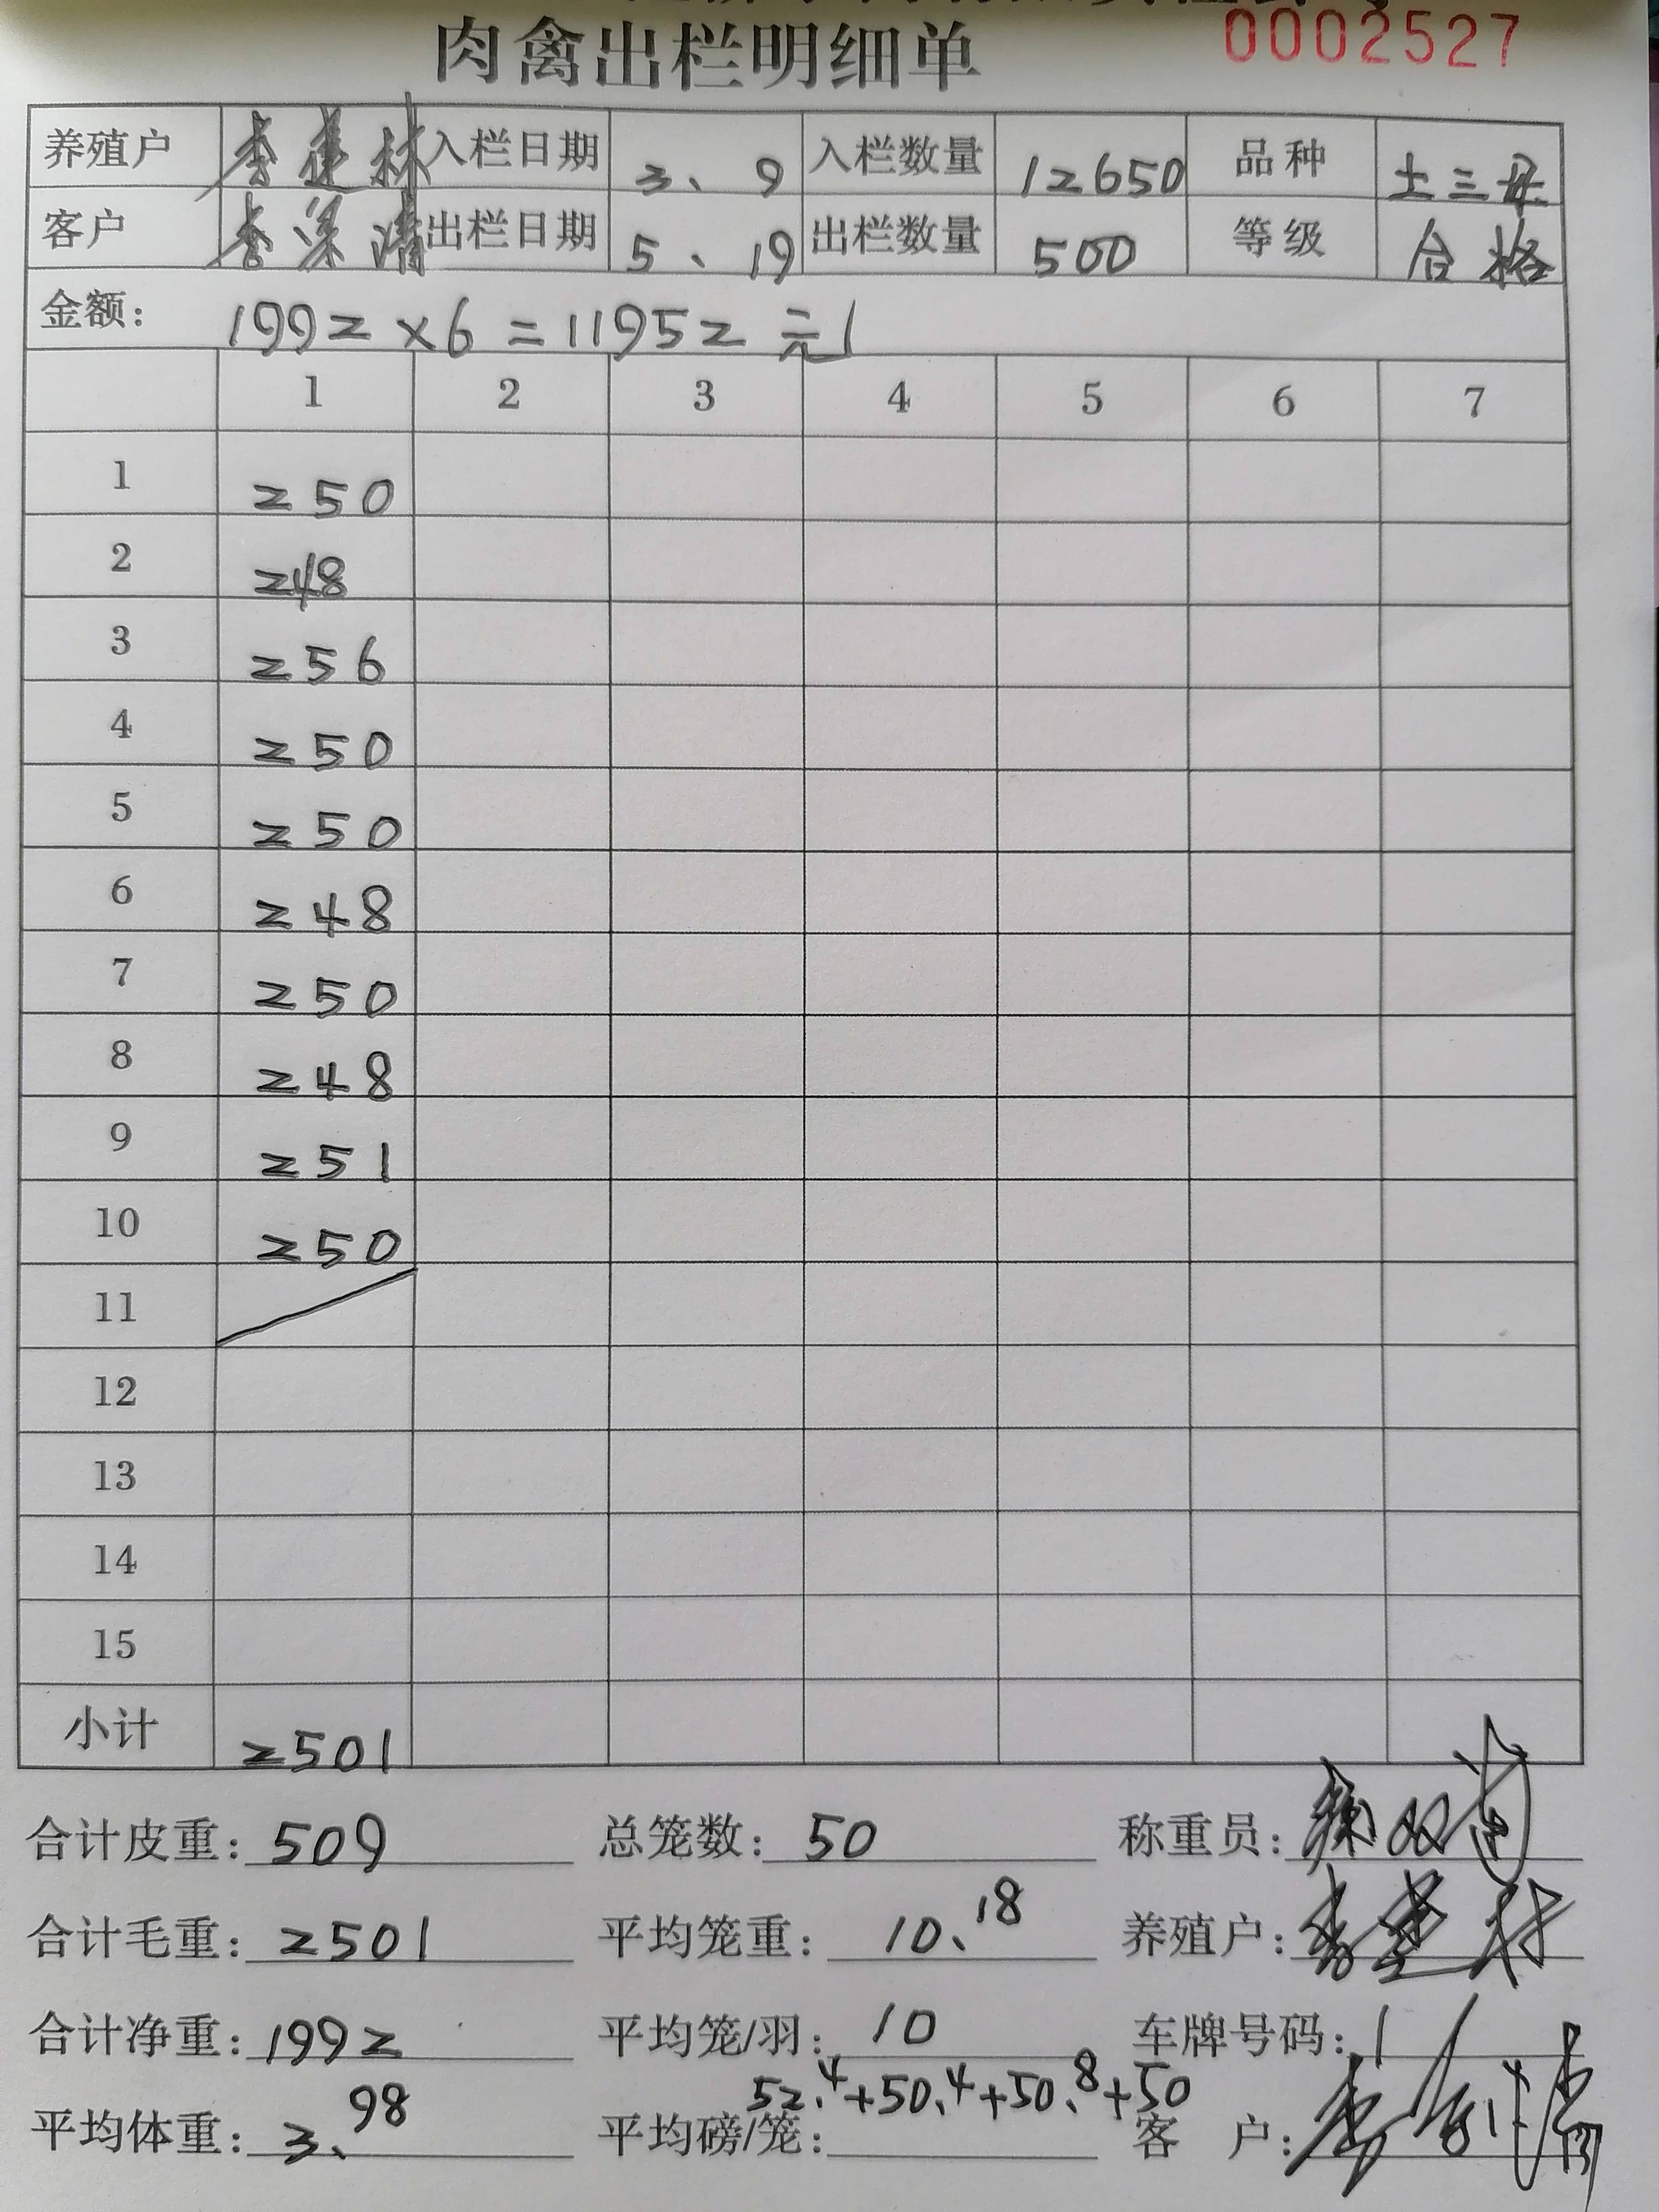 肉禽出栏明细单 0002527
养殖户 李建林 入栏日期 3、9 入栏数量 12650 品种 土三母
客户 李 清 出栏日期 5、19 出栏数量 500 等级 合格
金额: 1992×6=11952元
1 2 3 4 5 6 7
1 250
2 248
3 256
4 250
5 250
6 248
7 250
8 248
9 251
10 250
11
12
13
14
15
小计 2501
合计皮重: 509 总笼数: 50 称重员:
合计毛重: 2501 平均笼重: 10、18 养殖户: 李建林
合计净重: 1992 平均笼/羽: 10 车牌号码:
52.4+50.4+50.8+50
平均体重: 3、98 平均磅/笼: 客 户: